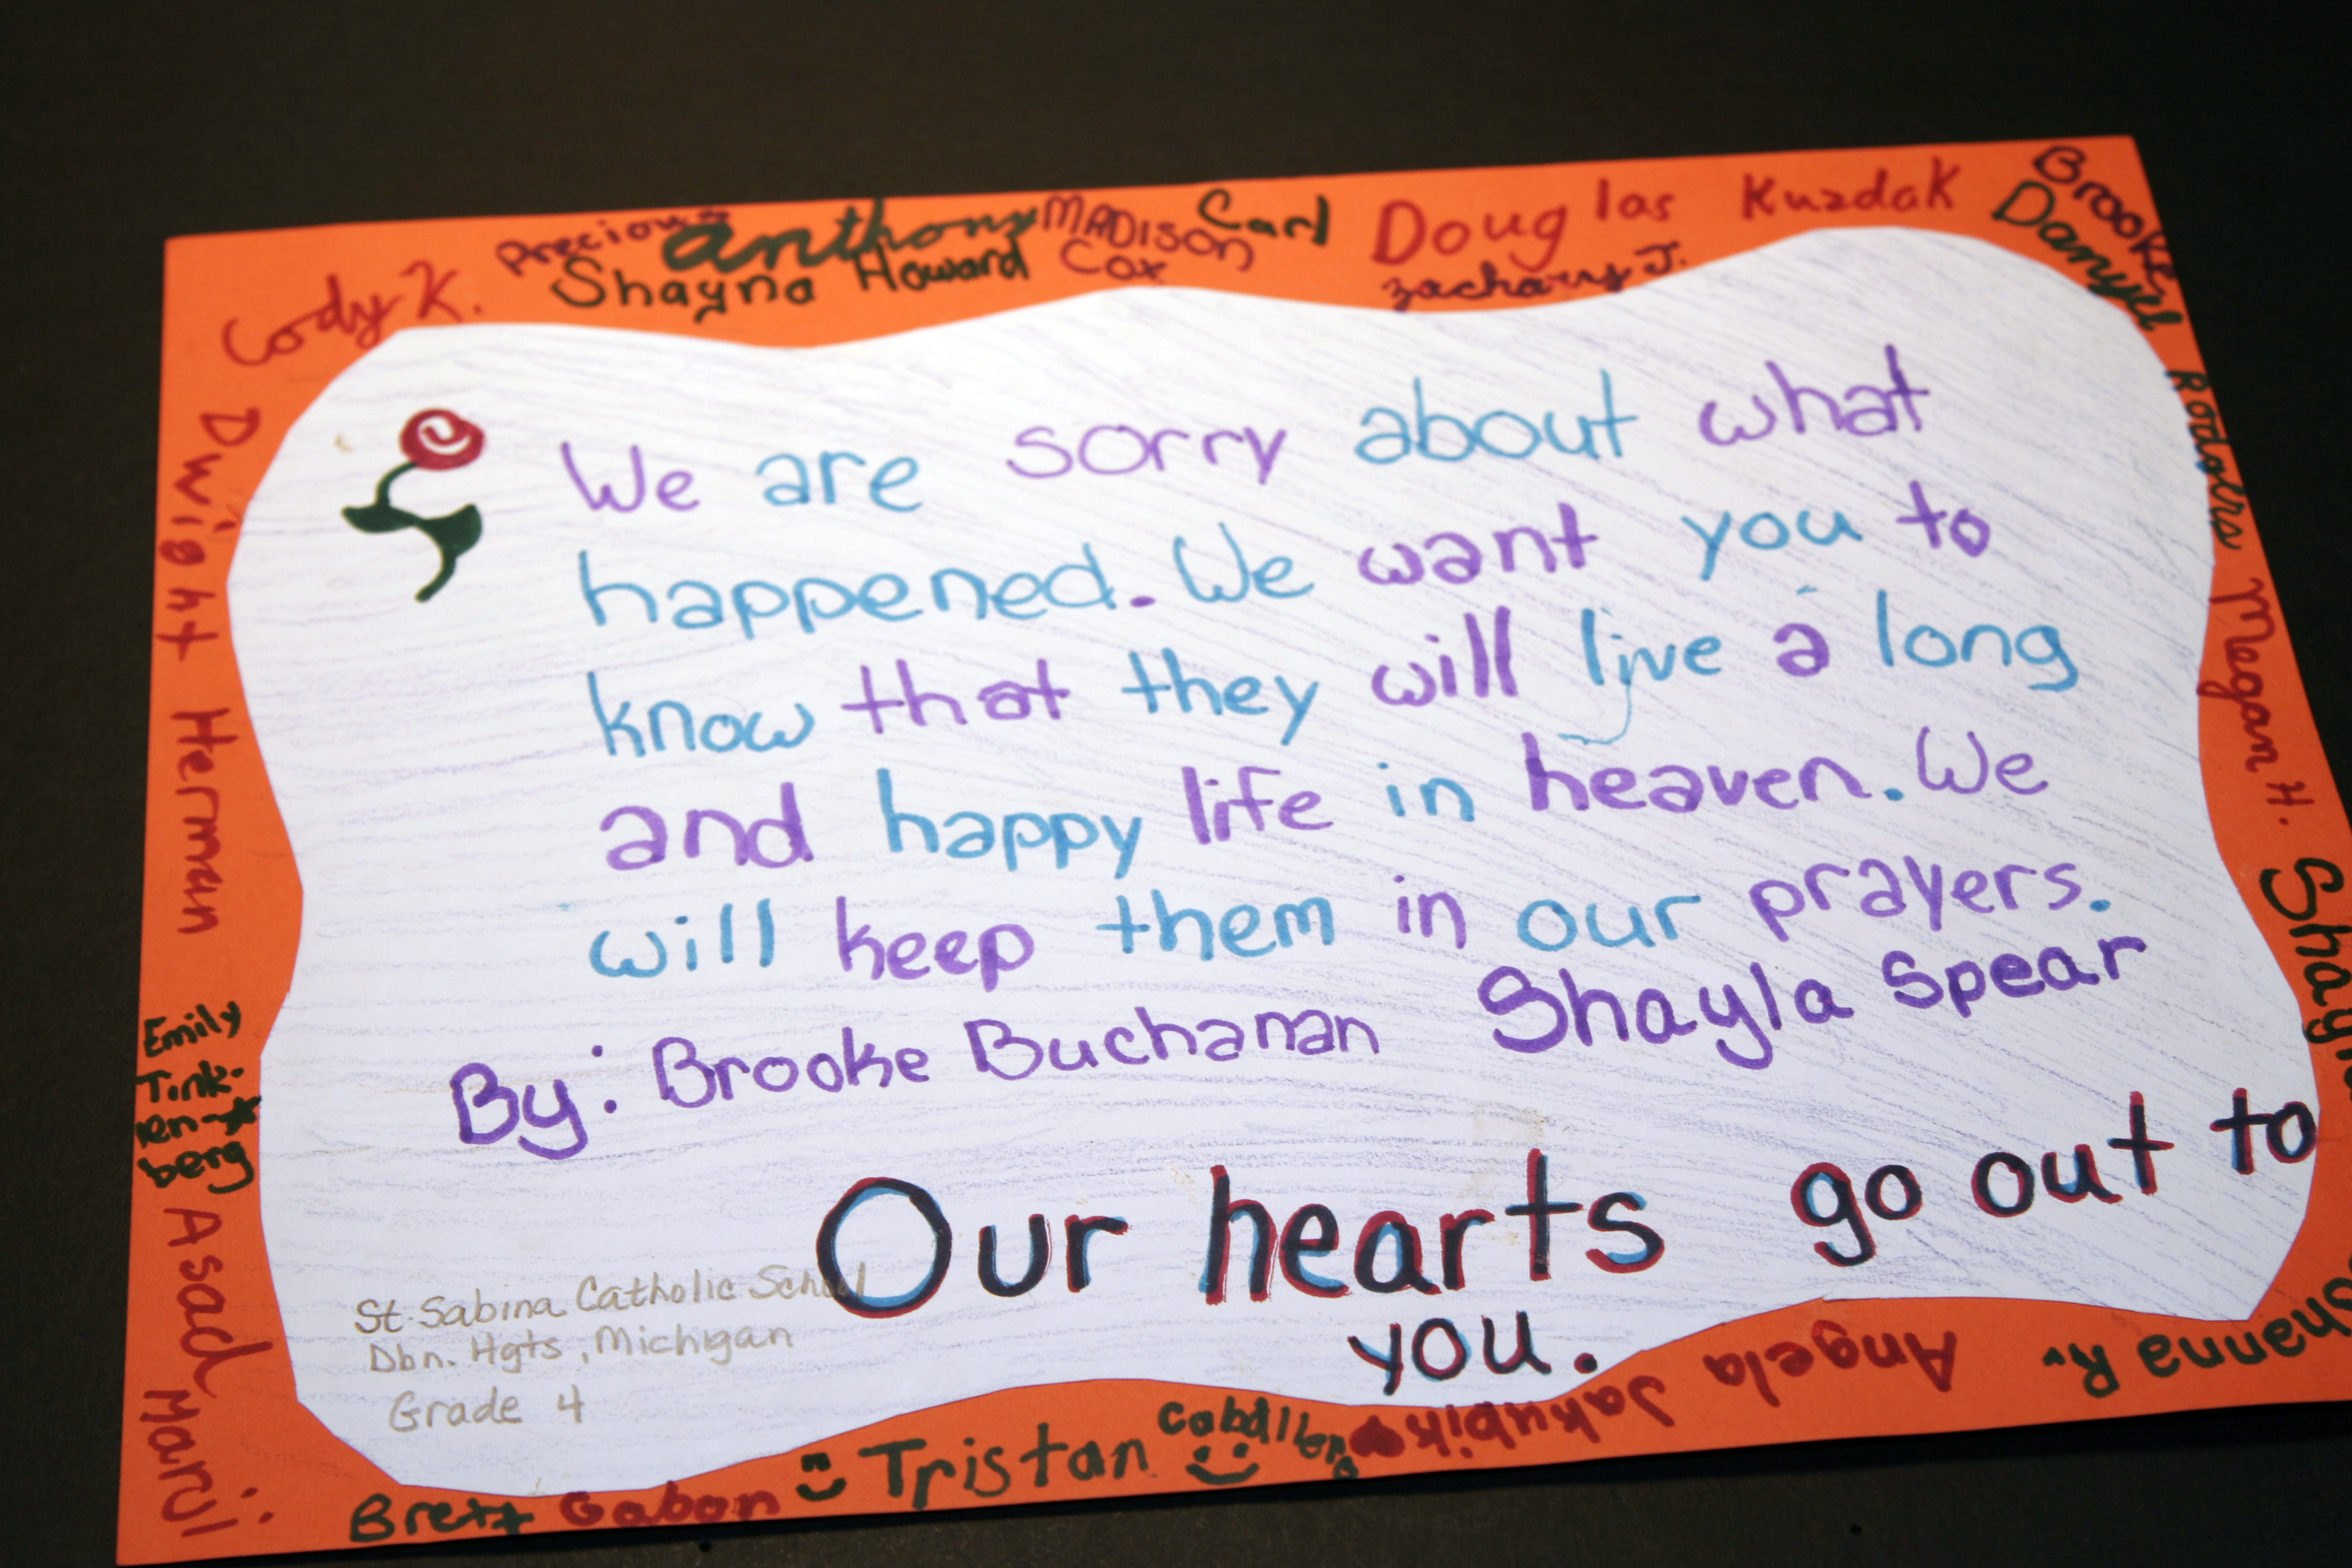 Cody K.
Precious
anthony
Shayna Howard
MADISON
Cox
Carl
Douglas Kuzdak
zachary J.
Brooke
Danyel
Rodgers
Megan H.
We are sorry about what
happened. We want you to
know that they will live a long
and happy life in heaven. We
will keep them in our prayers.
By: Brooke Buchanan Shayla Spear
Our hearts go out to
you.
St. Sabina Catholic School
Dbn. Hgts, Michigan
Grade 4
Dwight Herman
Emily
Tink-
en-
berg
Asad
Brett Gabon
Tristan
Angela Jakubik